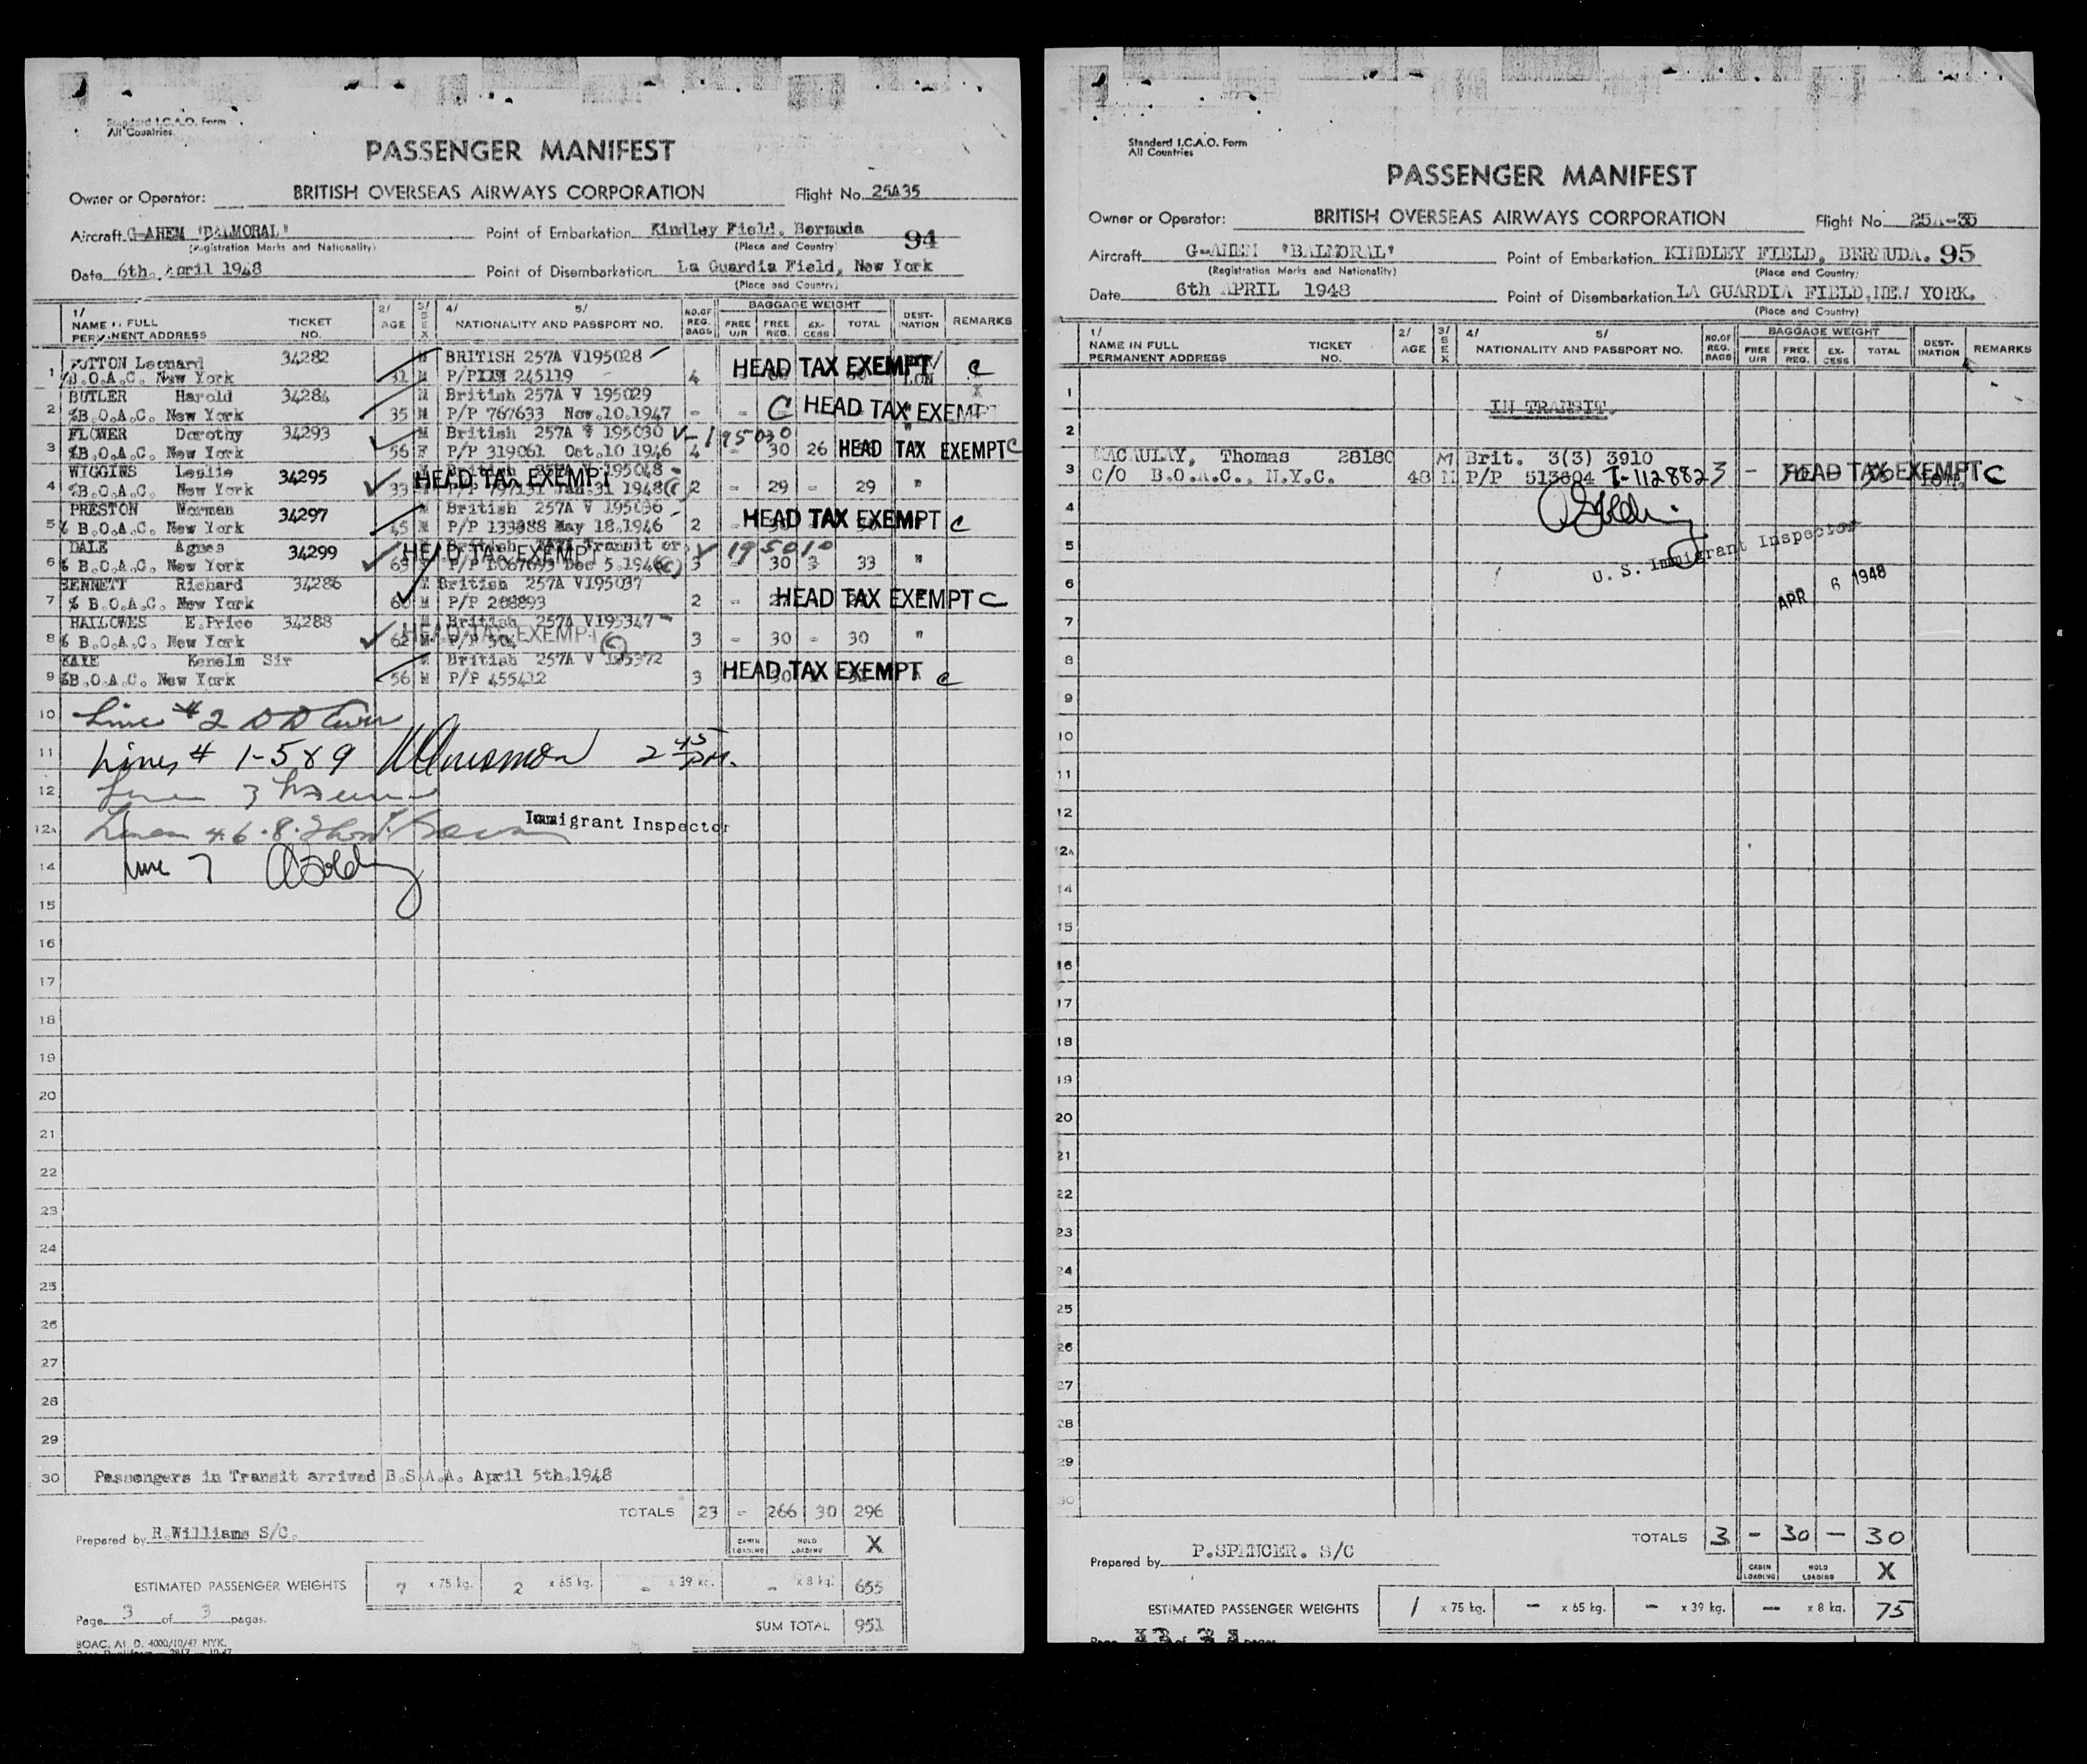 Standard I.C.A.O. Form
All Countries
PASSENGER MANIFEST
Owner or Operator: BRITISH OVERSEAS AIRWAYS CORPORATION Flight No. 25A35
Aircraft G-AHEM "BALMORAL" Point of Embarkation Kindley Field, Bermuda 94
(Registration Marks and Nationality) (Place and Country)
Date 6th. April 1948 Point of Disembarkation La Guardia Field, New York
(Place and Country)
1/ NAME IN FULL PERMANENT ADDRESS TICKET NO. 2/ AGE 3/ SEX 4/ 5/ NATIONALITY AND PASSPORT NO. NO.OF REG. BAGS BAGGAGE WEIGHT FREE U/R FREE REG. EX-CESS TOTAL DEST-INATION REMARKS
1 HUTTON Leonard 34282 M BRITISH 257A V195028 HEAD TAX EXEMPT C
B.O.A.C. New York 31 M P/P 245119 4 LON
2 BUTLER Harold 34284 M British 257A V 195029
%B.O.A.C. New York 35 M P/P 767633 Nov.10.1947 - - C HEAD TAX EXEMPT
3 FLOWER Dorothy 34293 M British 257A V 195030 V-195030
%B.O.A.C. New York 56 F P/P 319061 Oct.10 1946 4 - 30 26 HEAD TAX EXEMPT C
4 WIGGINS Leslie 34295 British 257A V 195048 HEAD TAX EXEMPT
%B.O.A.C. New York 33 P/P 797131 Jan.31 1948 C 2 - 29 - 29 "
5 PRESTON Norman 34297 M British 257A V 195036
% B.O.A.C. New York 45 M P/P 139888 May 18.1946 2 - HEAD TAX EXEMPT C
6 DALE Agnes 34299 British Transit or V 195010 HEAD TAX EXEMPT
% B.O.A.C. New York P/P Dec 5.1946 C 3 - 30 3 33 "
7 BENNETT Richard 34286 M British 257A V195037
% B.O.A.C. New York 60 M P/P 208893 2 - HEAD TAX EXEMPT C
8 HALLOWES E.Price 34288 M British 257A V195347 HEAD TAX EXEMPT
% B.O.A.C. New York 62 M P/P 504 C 3 - 30 - 30 "
9 KAYE Kenelm Sir M British 257A V 195372
%B.O.A.C. New York 56 M P/P 455412 3 HEAD TAX EXEMPT C
10 Line #2
11 Lines # 1-5 & 9 2 45 PM.
12 Line 3
12A Lines 4.6.8. Immigrant Inspector
14 Line 7 A Golding
15
16
17
18
19
20
21
22
23
24
25
26
27
28
29
30 Passengers in Transit arrived B.S.A.A. April 5th.1948
TOTALS 23 - 266 30 296
Prepared by R.Williams S/C. CABIN LOADING HOLD LOADING X
ESTIMATED PASSENGER WEIGHTS 7 x 75 kg. 2 x 65 kg. - x 39 kg. - x 8 kg. 655
Page 3 of 3 pages. SUM TOTAL 951
BOAC. A1. D. 4000/10/47 NYK.
Standard I.C.A.O. Form
All Countries
PASSENGER MANIFEST
Owner or Operator: BRITISH OVERSEAS AIRWAYS CORPORATION Flight No. 25A-35
Aircraft G-AHEM "BALMORAL" Point of Embarkation KINDLEY FIELD, BERMUDA. 95
(Registration Marks and Nationality) (Place and Country)
Date 6th APRIL 1948 Point of Disembarkation LA GUARDIA FIELD, NEW YORK.
(Place and Country)
1/ NAME IN FULL PERMANENT ADDRESS TICKET NO. 2/ AGE 3/ SEX 4/ 5/ NATIONALITY AND PASSPORT NO. NO.OF REG. BAGS BAGGAGE WEIGHT FREE U/R FREE REG. EX-CESS TOTAL DEST-INATION REMARKS
1 IN TRANSIT.
2
3 MACAULAY, Thomas 28180 M Brit. 3(3) 3910
C/O B.O.A.C., N.Y.C. 48 M P/P 513604 T-112882 3 - HEAD TAX EXEMPT C
4 A Golding
5 U. S. Immigrant Inspector
6 APR 6 1948
7
8
9
10
11
12
12A
14
15
16
17
18
19
20
21
22
23
24
25
26
27
28
29
30
TOTALS 3 - 30 - 30
Prepared by P.SPENCER. S/C CABIN LOADING HOLD LOADING X
ESTIMATED PASSENGER WEIGHTS 1 x 75 kg. - x 65 kg. - x 39 kg. - x 8 kg. 75